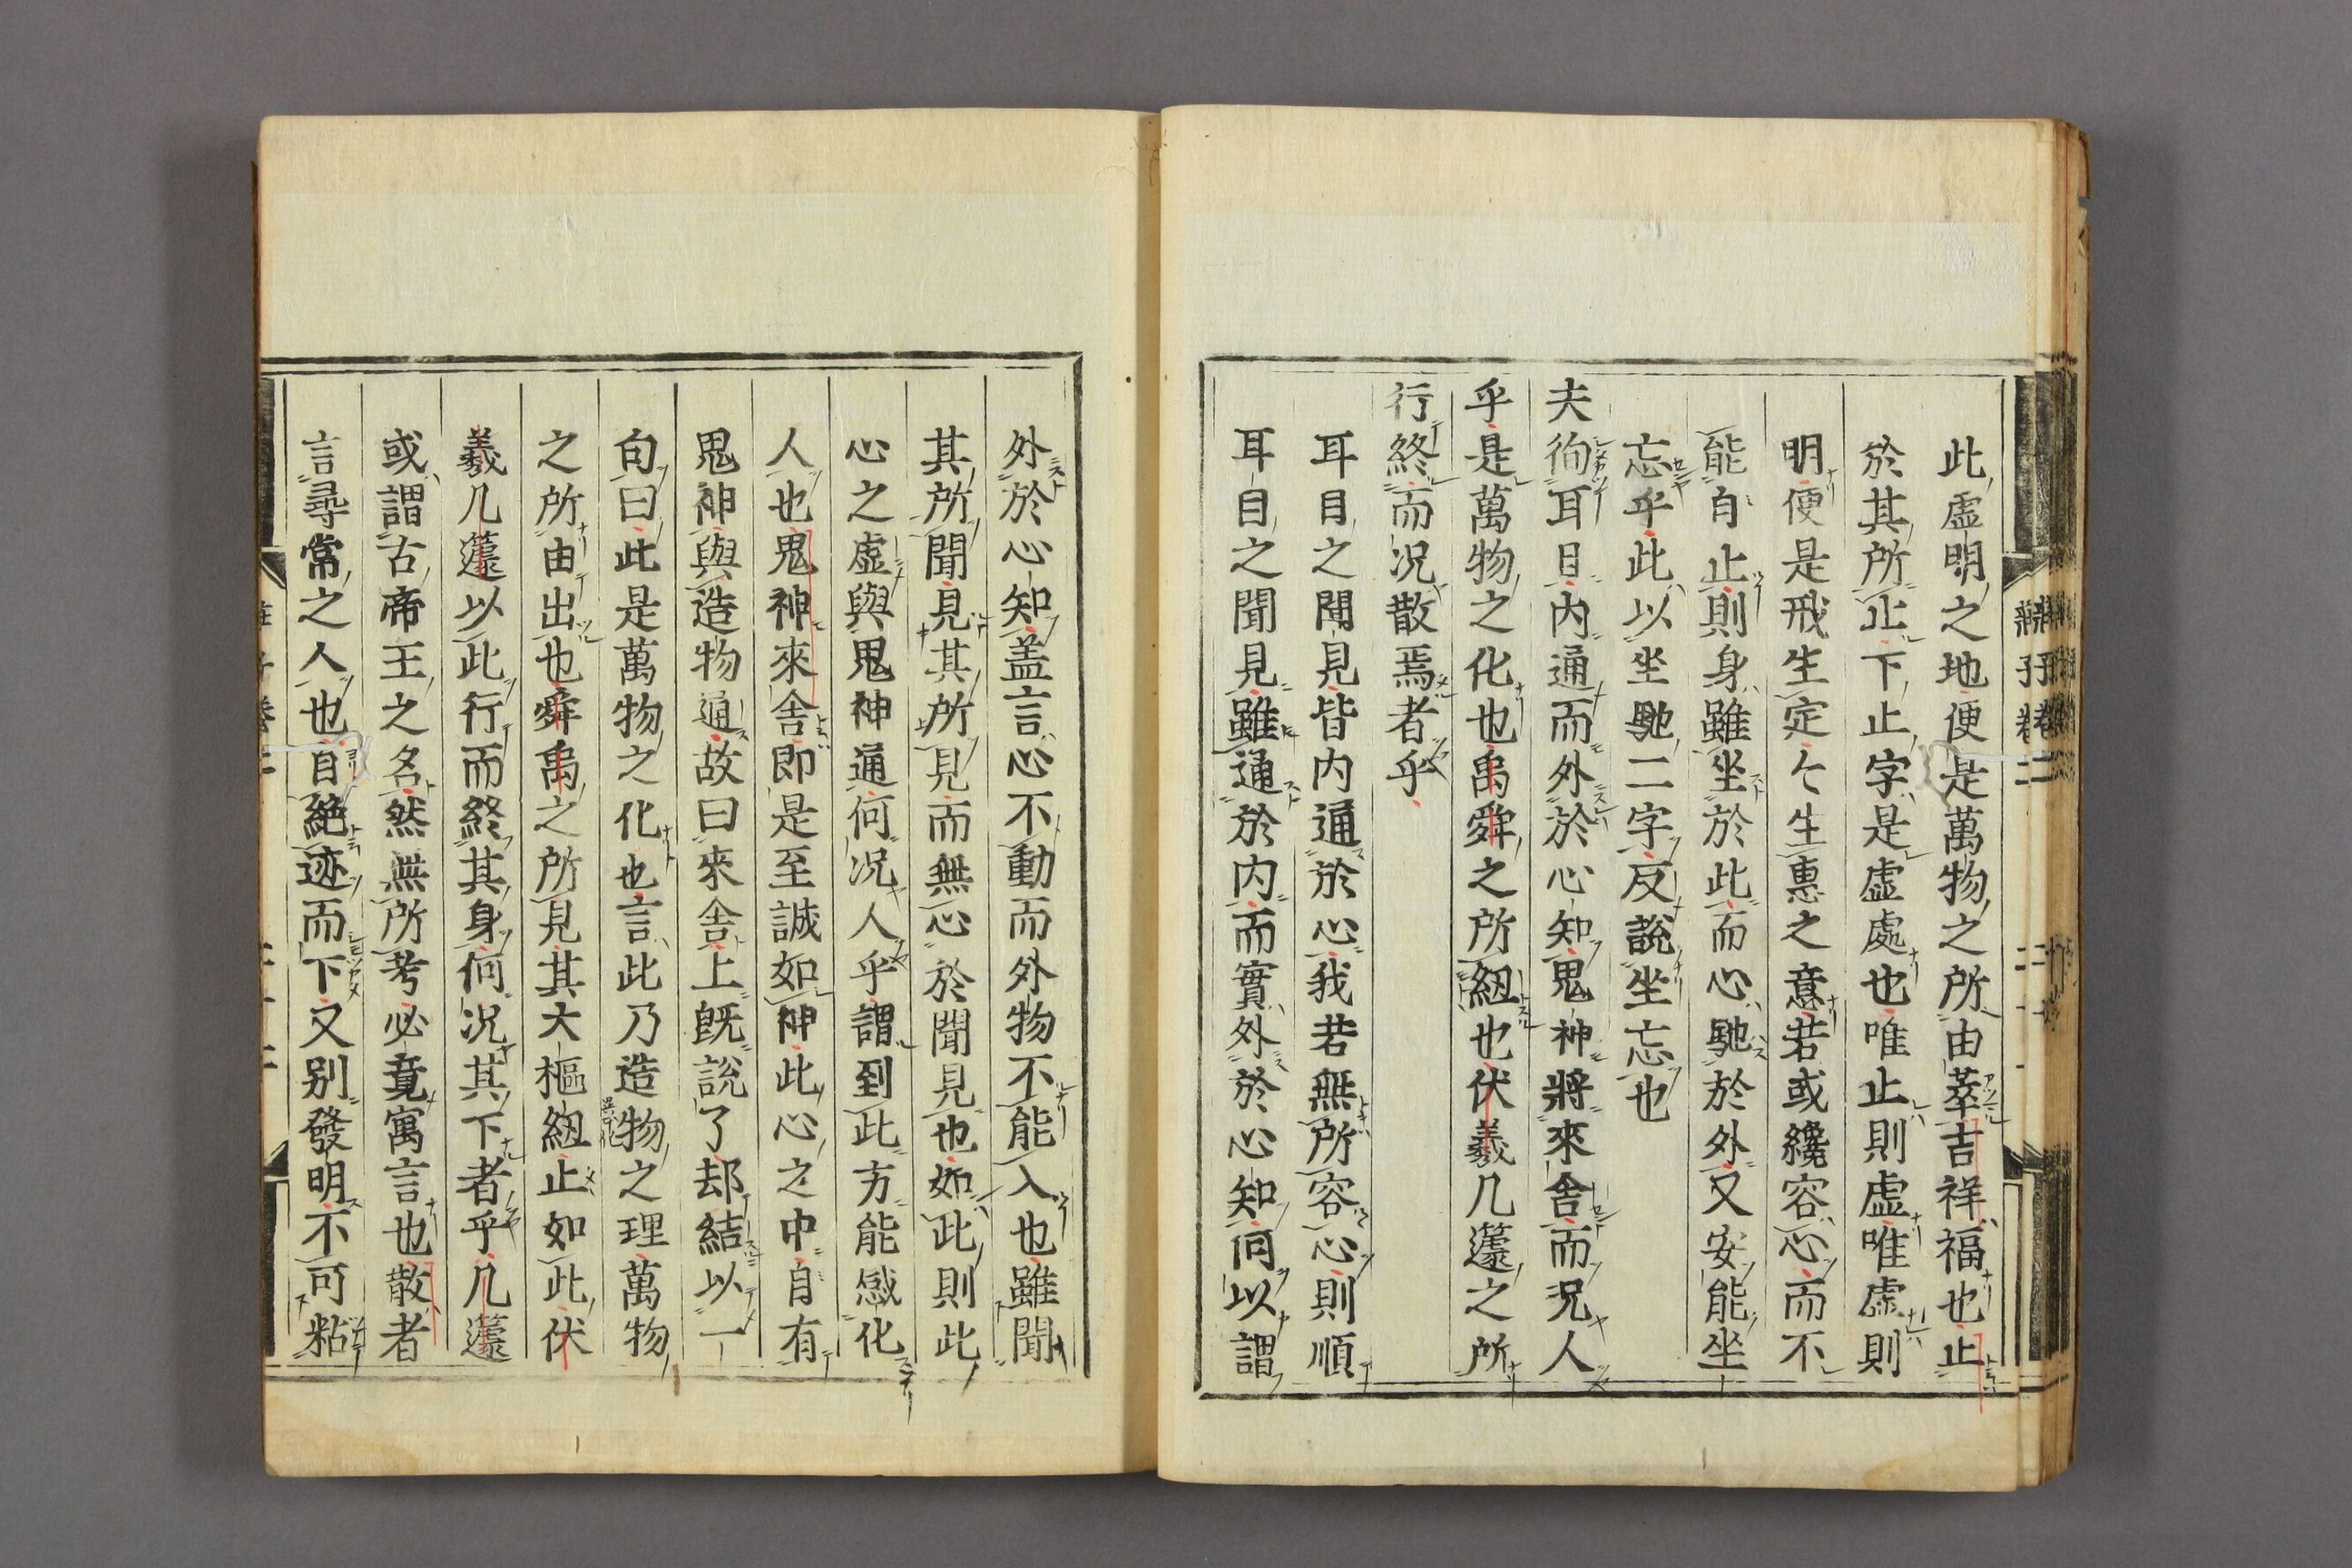 此虛明之地便是萬物之所由萃吉祥福也止
於其所止下止字是虛處也唯止則虛唯虛則
明便是戒生定々生惠之意若或纔容心而不
能自止則身雖坐於此而心馳於外又安能坐
忘乎此以坐馳二字反說坐忘也
夫徇耳目內通而外於心知鬼神將來舍而况人
乎是萬物之化也禹舜之所紐也伏羲几蘧之所
行終而况散焉者乎
耳目之聞見皆內通於心我若無所容心則順
耳目之聞見雖通於內而實外於心知何以謂
外於心知盖言心不動而外物不能入也雖聞
其所聞見其所見而無心於聞見也如此則此
心之虛與鬼神通何况人乎謂到此方能感化
人也鬼神來舍即是至誠如神此心之中自有
鬼神與造物通故曰來舍上既說了却結以一
句曰此是萬物之化也言此乃造物之理萬物
之所由出也舜禹之所見其大樞紐止如此伏
羲几蘧以此行而終其身何况其下者乎几蘧
或謂古帝王之名然無所考必竟寓言也散者
言尋常之人也自絕迹而下又别發明不可粘